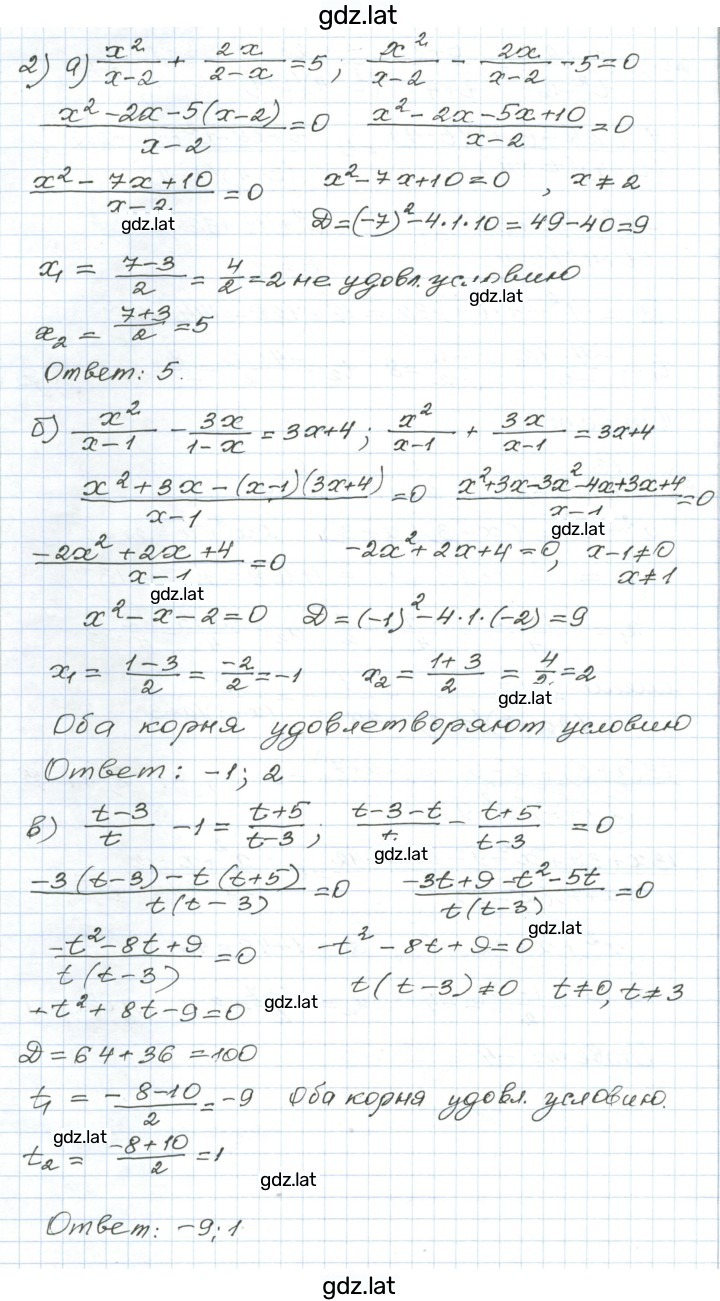 gdz.lat
2) а) x²/(x-2) + 2x/(2-x) = 5; x²/(x-2) - 2x/(x-2) - 5 = 0
(x²-2x-5(x-2))/(x-2) = 0 (x²-2x-5x+10)/(x-2) = 0
(x²-7x+10)/(x-2) = 0 x²-7x+10=0, x≠2
gdz.lat Д=(-7)²-4·1·10=49-40=9
x₁ = (7-3)/2 = 4/2 = 2 не удовл. условию
gdz.lat
x₂ = (7+3)/2 = 5
Ответ: 5.
б) x²/(x-1) - 3x/(1-x) = 3x+4; x²/(x-1) + 3x/(x-1) = 3x+4
(x²+3x-(x-1)(3x+4))/(x-1) = 0 (x²+3x-3x²-4x+3x+4)/(x-1) = 0
gdz.lat
(-2x²+2x+4)/(x-1) = 0 -2x²+2x+4=0, x-1≠0
gdz.lat x≠1
x²-x-2=0 Д=(-1)²-4·1·(-2)=9
x₁ = (1-3)/2 = -2/2 = -1 x₂ = (1+3)/2 = 4/2 = 2
gdz.lat
Оба корня удовлетворяют условию
Ответ: -1; 2
в) (t-3)/t - 1 = (t+5)/(t-3); (t-3-t)/t - (t+5)/(t-3) = 0
gdz.lat
(-3(t-3)-t(t+5))/(t(t-3)) = 0 (-3t+9-t²-5t)/(t(t-3)) = 0
gdz.lat
(-t²-8t+9)/(t(t-3)) = 0 -t²-8t+9=0
t(t-3)≠0 t≠0, t≠3
+t²+8t-9=0 gdz.lat
Д=64+36=100
t₁ = -(8-10)/2 = -9 Оба корня удовл. условию.
gdz.lat
t₂ = (-8+10)/2 = 1
gdz.lat
Ответ: -9; 1
gdz.lat